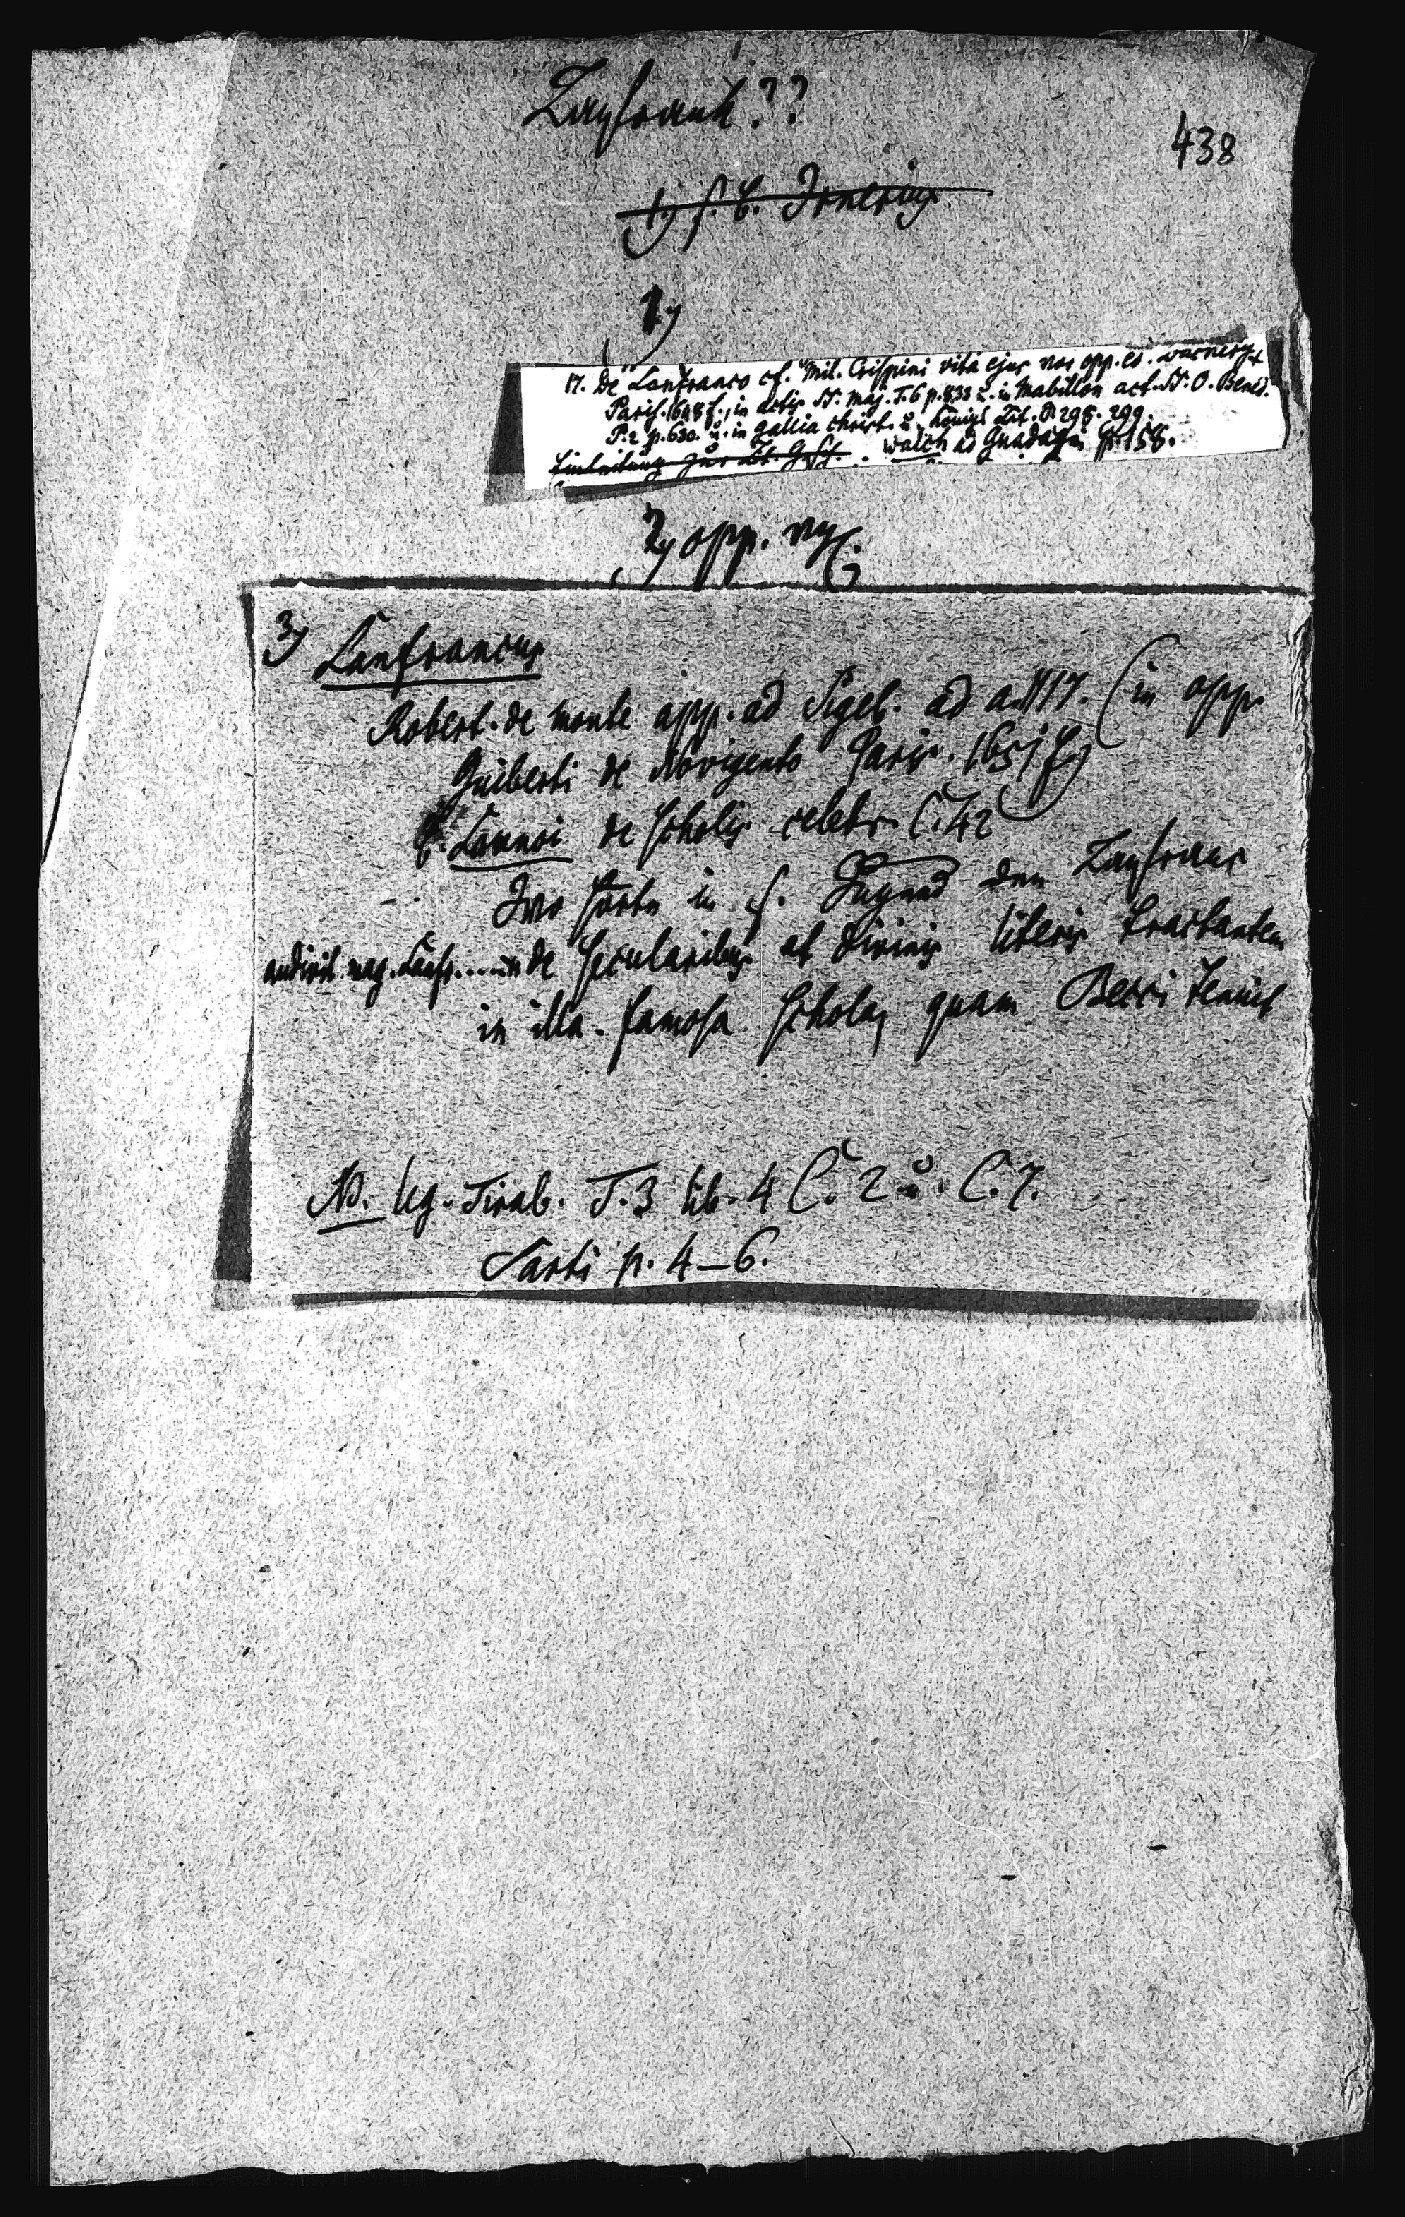 Lanfrank??
438
1) s. C. Irnerius
1)
17. De Lanfranco cf. Mil. Crispini vita ejus vor opp. ed.
Paris. 1648 f., in actis SS. Maj. T. 6 p. 833 u. in Mabillon act. SS. O. Bened.
P. 2 p. 630. u. in gallia christ. u. Königs Lit. P. 298. 299.
Einleitung zur Walch ad p. 158.
2) opp.
3) Lanfrancus
Robert. de monte app. ad Sigeb. ad a. 1117. (in opp.
Guiberti de Novigento Paris. 1651 f)
Launoi de scholis celebr. C. 42
Ivo hörte in s. Jugend den Lanfranc
audivit mag. Lanfr..... de secularibus et divinis literis tractantem
in illa famosa schola, quam Becci tenuit
NB. leg. Tirab. T. 3 lib. 4 C. 2 u. C. 7.
Sarti p. 4–6.